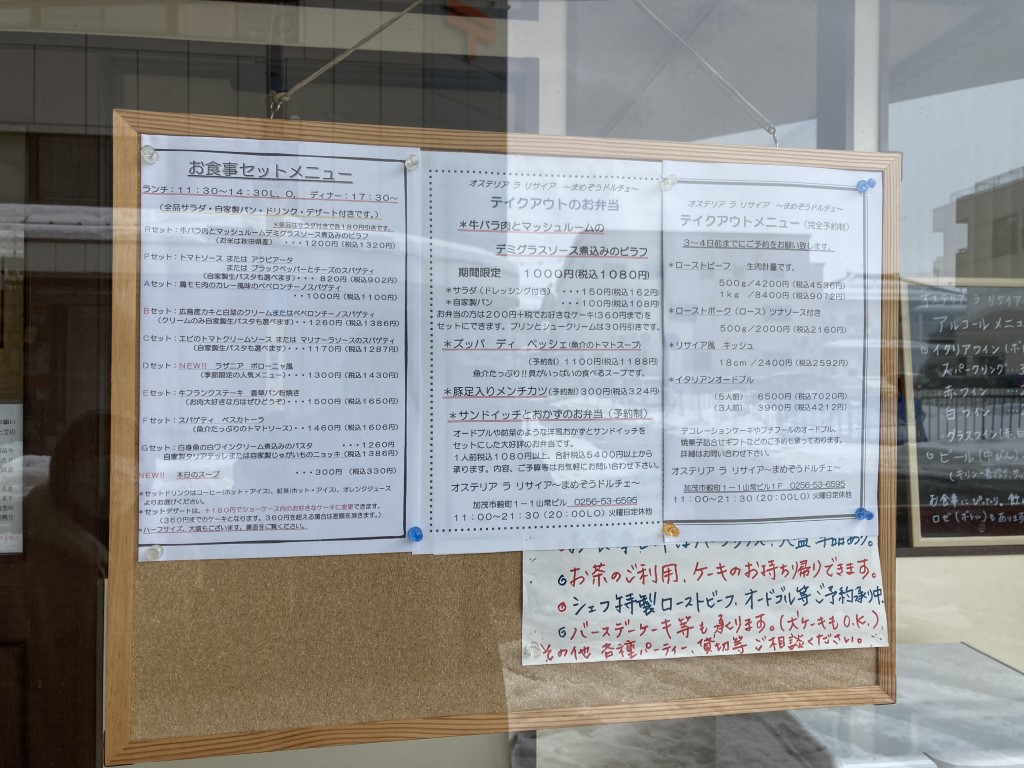 お食事セットメニュー
ランチ：11：30～14：30L．O． ディナー：17：30～
（全品サラダ・自家製パン・ドリンク・デザート付きです。）
＊単品はサラダ付きで各180円引きです。
Rセット：牛バラ肉とマッシュルームデミグラスソース煮込みのピラフ
（お米は秋田県産） ・・・1200円（税込1320円）
Pセット：トマトソース または アラビアータ
または ブラックペッパーとチーズのスパゲティ
（自家製生パスタも選べます）・・・820円（税込902円）
Aセット：鶏モモ肉のカレー風味のペペロンチーノスパゲティ
・・・1000円（税込1100円）
Bセット：広島産カキと白菜のクリームまたはペペロンチーノスパゲティ
（クリームのみ自家製生パスタも選べます）・・1260円（税込1386円）
Cセット：エビのトマトクリームソース または マリナーラソースのスパゲティ
（自家製生パスタも選べます）・・・1170円（税込1287円）
Dセット：NEW!! ラザニア ボローニャ風
（季節限定の人気メニュー）・・・1300円（税込1430円）
Eセット：牛フランクステーキ 香草パン粉焼き
（お肉大好きな方はぜひどうぞ）・・・1500円（税込1650円）
Fセット：スパゲティ ペスカトーラ
（魚介たっぷりのトマトソース）・・・1460円（税込1606円）
Gセット：白身魚の白ワインクリーム煮込みのパスタ ・・・1260円
自家製タリアテッレまたは自家製じゃがいものニョッキ（税込1386円）
NEW!! 本日のスープ ・・・300円（税込330円）
＊セットドリンクはコーヒー（ホット・アイス）、紅茶（ホット・アイス）、オレンジジュース
よりお選びください。
＊セットデザートは、＋180円でショーケース内のお好きなケーキに変更できます。
（360円までのケーキとなります。360円を超える場合は差額を頂きます。）
＊ハーフサイズ、大盛もございます。裏面をご覧ください。
オステリア ラ リサイア ～まめぞうドルチェ～
テイクアウトのお弁当
＊牛バラ肉とマッシュルームの
デミグラスソース煮込みのピラフ
期間限定 1000円（税込1080円）
＊サラダ（ドレッシング付き）・・・150円（税込162円）
＊自家製パン ・・・100円（税込108円）
お弁当の方は200円＋税でお好きなケーキ（360円まで）を
セットにできます。プリンとシュークリームは30円引きです。
＊ズッパ ディ ペッシェ（魚介のトマトスープ）
（予約制）1100円（税込1188円）
魚介たっぷり!!具がいっぱいの食べるスープです。
＊豚足入りメンチカツ（予約制）300円（税込324円）
＊サンドイッチとおかずのお弁当（予約制）
オードブルや前菜のような洋風おかずとサンドイッチを
セットにした大好評のお弁当です。
1人前税込1080円以上、合計税込5400円以上から
承ります。内容、ご予算等はお気軽にお問い合わせ下さい。
オステリア ラ リサイア～まめぞうドルチェ～
加茂市穀町1－1山常ビル 0256-53-6595
11：00～21：30（20：00LO）火曜日定休他
オステリア ラ リサイア ～まめぞうドルチェ～
テイクアウトメニュー（完全予約制）
3～4日前までにご予約をお願い致します。
＊ローストビーフ 生肉計量です。
500g／4200円（税込4536円）
1kg ／8400円（税込9072円）
＊ローストポーク（ロース）ツナソース付き
500g／2000円（税込2160円）
＊リサイア風 キッシュ
18cm／2400円（税込2592円）
＊イタリアンオードブル
（5人前） 6500円（税込7020円）
（3人前） 3900円（税込4212円）
デコレーションケーキやプチフールのオードブル、
焼菓子詰合せギフトなどのご予約も承っております。
詳細はお問い合わせ下さい。
オステリア ラ リサイア～まめぞうドルチェ～
加茂市穀町1－1山常ビル1F 0256-53-6595
11：00～21：30（20：00LO）火曜日定休他
お茶のご利用、ケーキのお持ち帰りできます。
シェフ特製ローストビーフ、オードブル等ご予約承り中
バースデーケーキ等も承ります。（犬ケーキもO.K.）
その他 各種パーティー、貸切等ご相談ください。
オステリア ラ リサイア
アルコールメニュ
イタリアワイン（ボ
スパークリング
赤ワイン
白ワイン
グラスワイン（赤
ビール（中びん）
お食事にぴったり、飲